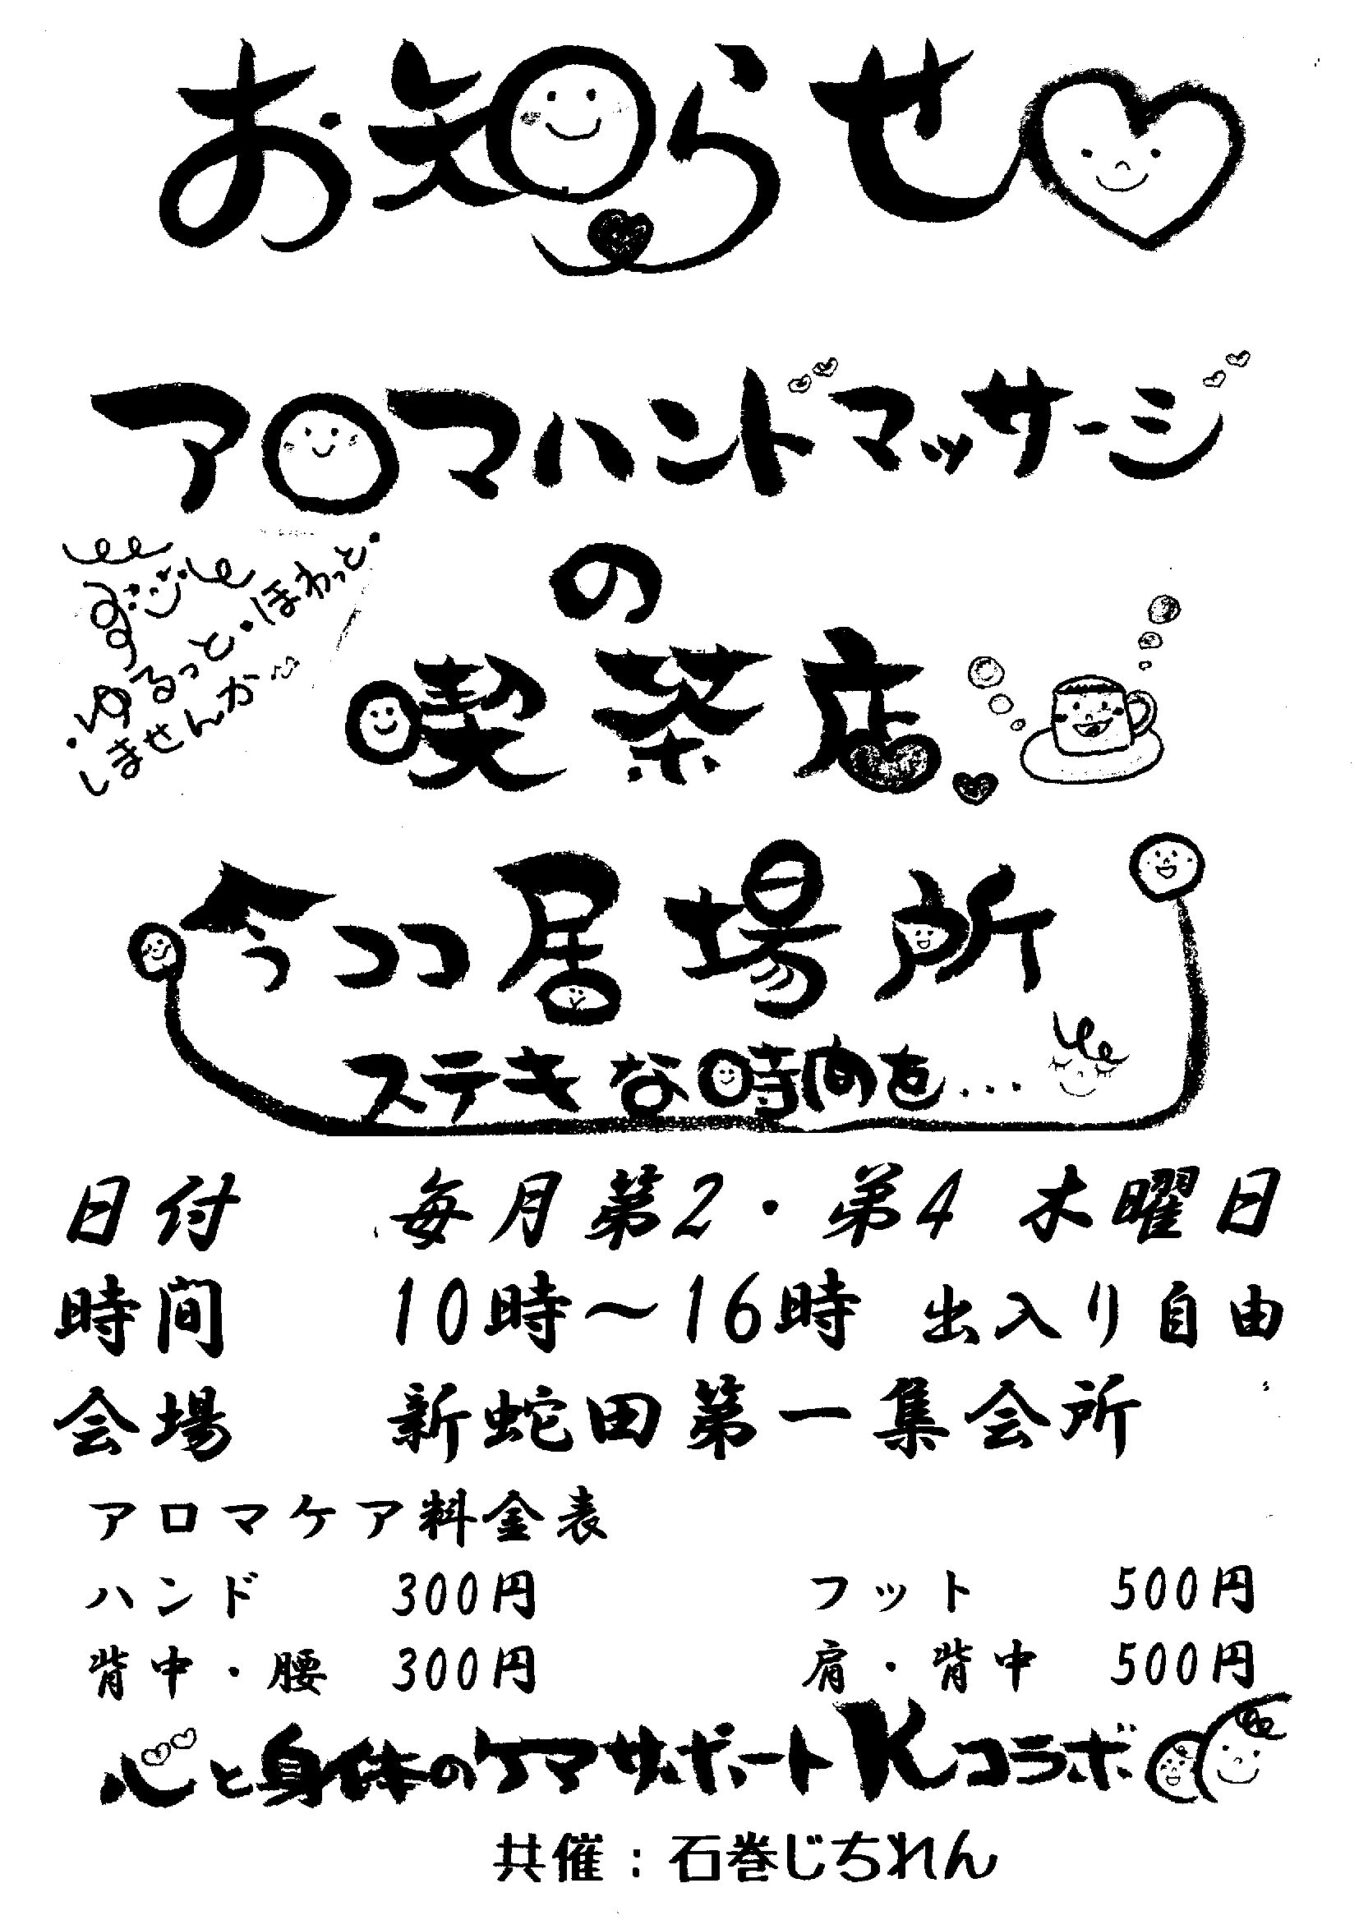 お知らせ
アロマハンドマッサージ
の
・ゆるっと・ほわっと・
しませんか〜
喫茶店
今ココ居場所
ステキな時間を...
日付 毎月第2・第4 木曜日
時間 10時～16時 出入り自由
会場 新蛇田第一集会所
アロマケア料金表
ハンド 300円 フット 500円
背中・腰 300円 肩・背中 500円
心と身体のケアサポートKコラボ
共催：石巻じちれん